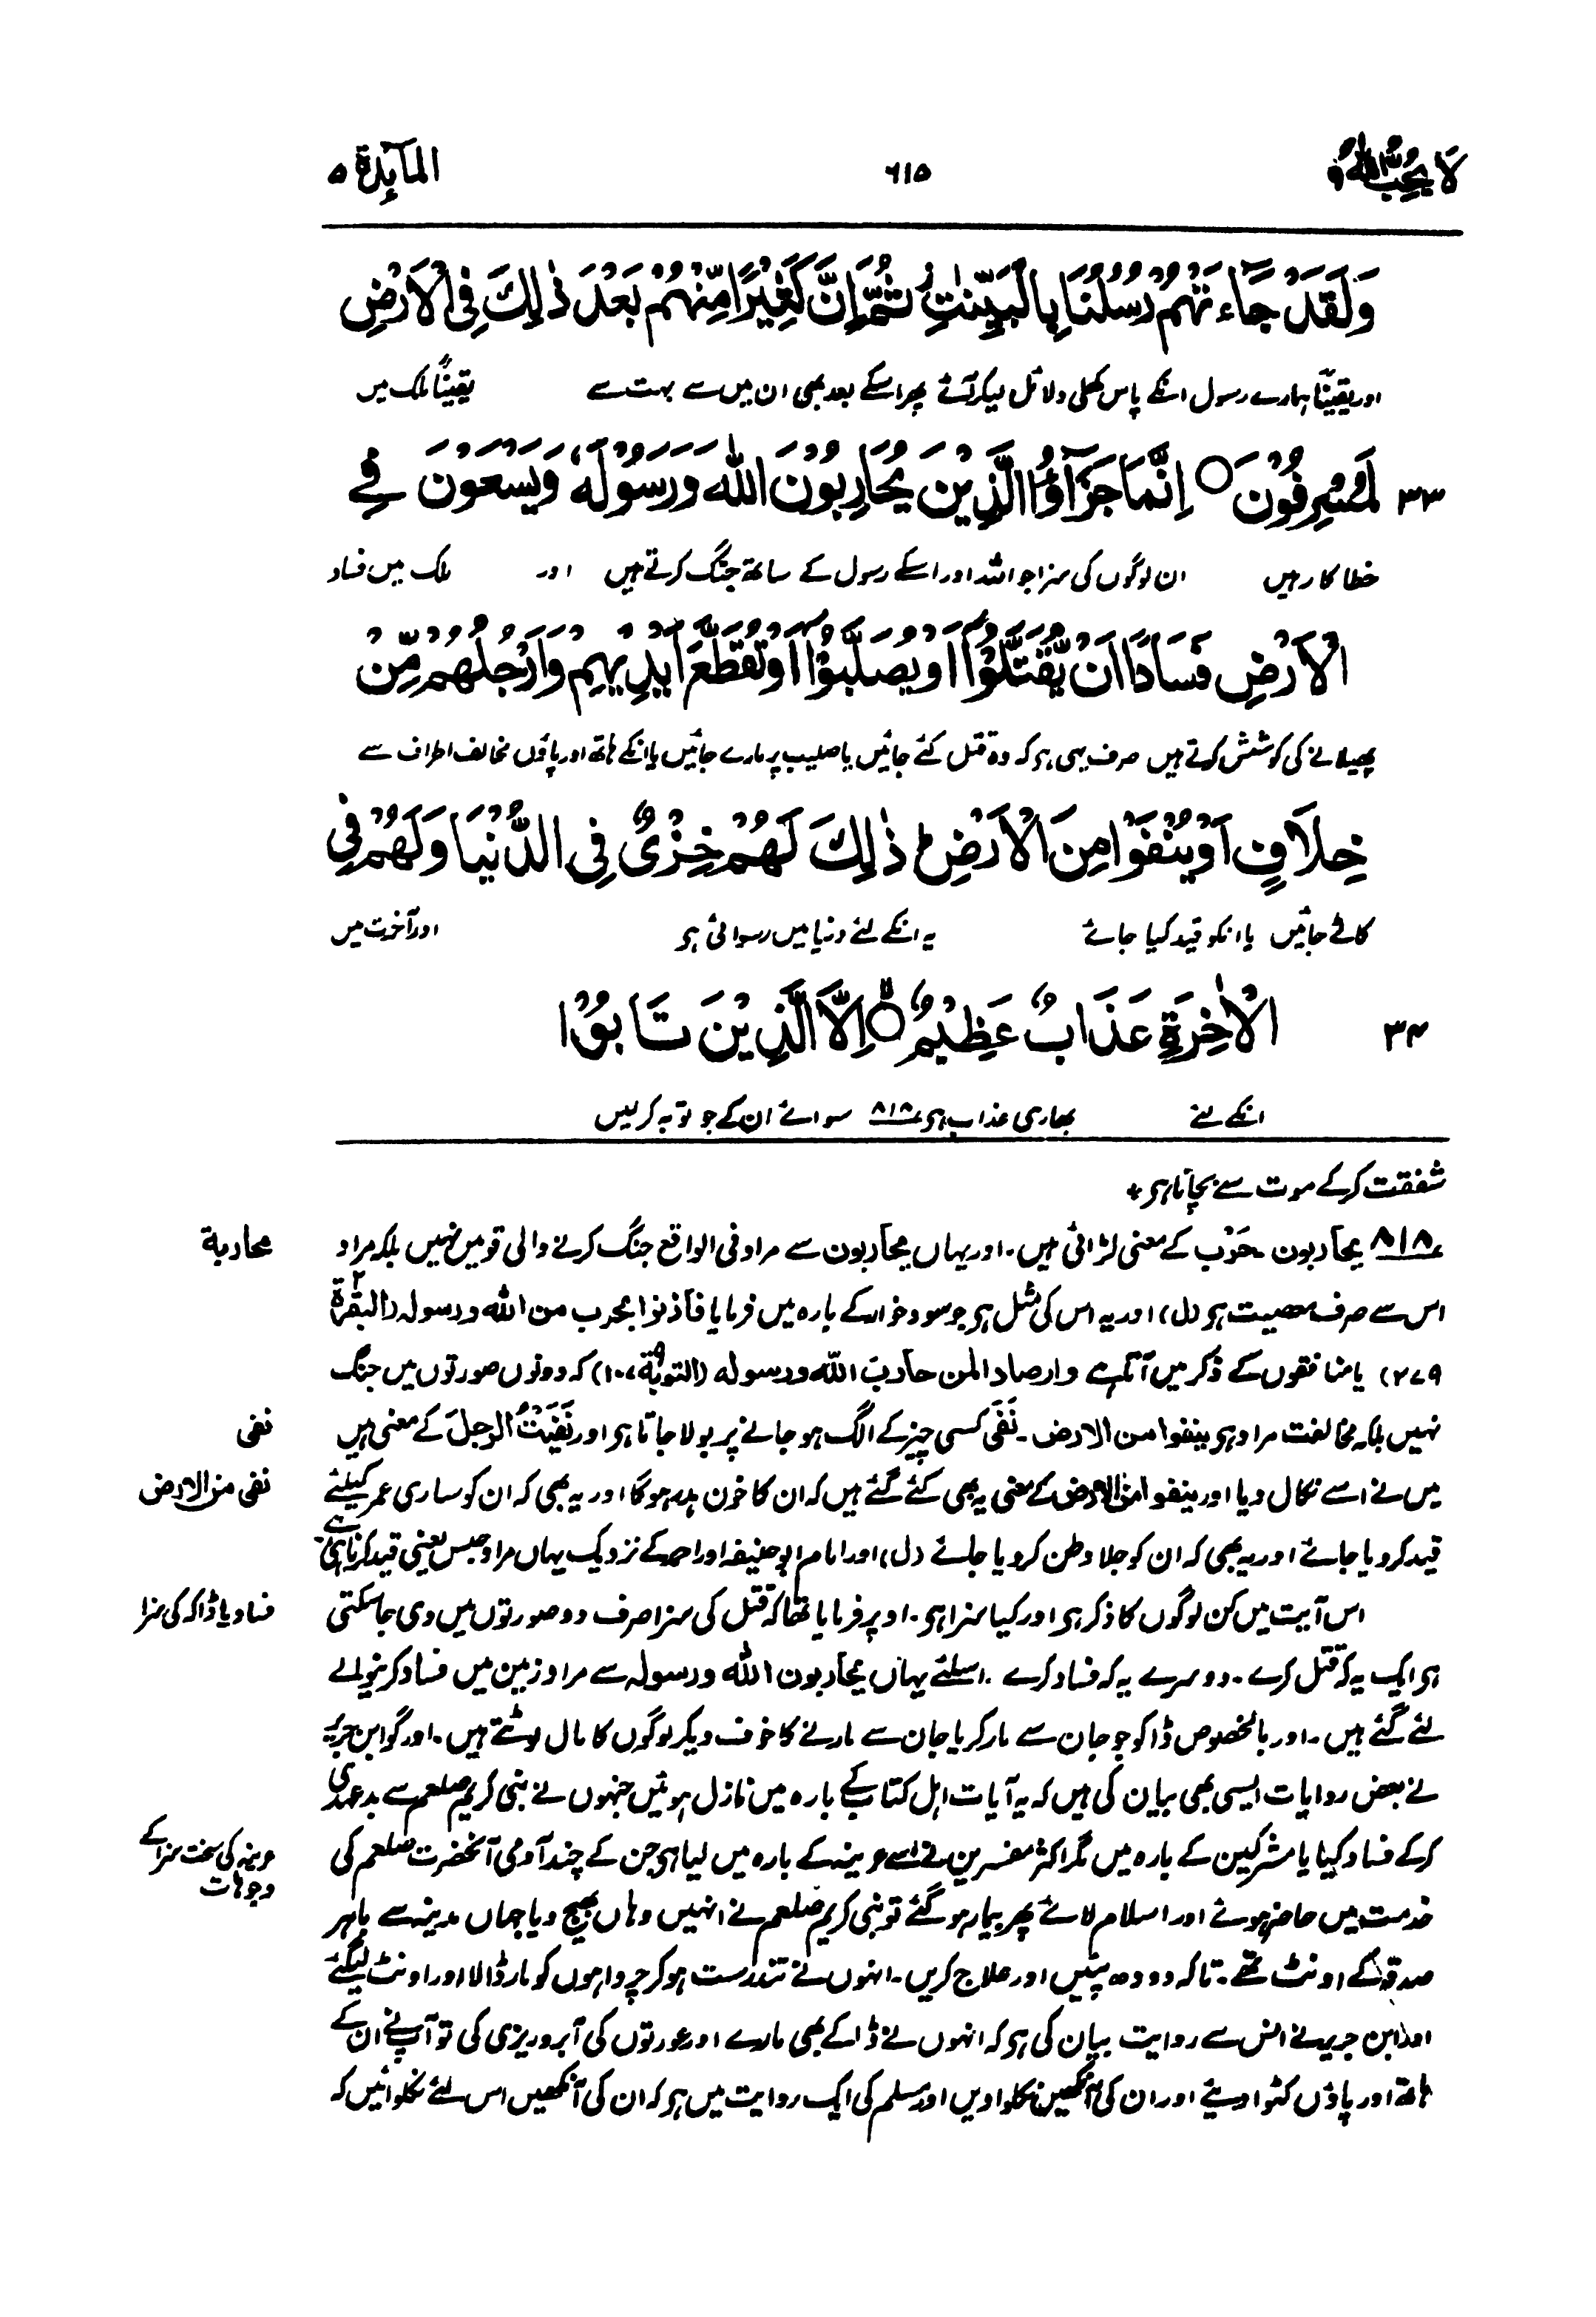 لَا يُحِبُّ اللّٰهُ ۶
۶۱۵
المَآئِدَة ۵
وَلَقَدْ جَآءَتْهُمْ رُسُلُنَا بِالْبَيِّنٰتِ ز ثُمَّ اِنَّ كَثِيْرًا مِّنْهُمْ بَعْدَ ذٰلِكَ فِى الْاَرْضِ
اور یقیناً ہمارے رسول انکے پاس کھلی دلائل لیکر آئے پھر اسکے بعد بھی ان میں سے بہت سے یقیناً ملک میں
۳۳ لَمُسْرِفُوْنَ ○ اِنَّمَا جَزٰٓؤُا الَّذِيْنَ يُحَارِبُوْنَ اللّٰهَ وَرَسُوْلَهٗ وَيَسْعَوْنَ فِى
خطا کار ہیں ان لوگوں کی سزا جو اللہ اور اسکے رسول کے ساتھ جنگ کرتے ہیں اور ملک میں فساد
الْاَرْضِ فَسَادًا اَنْ يُّقَتَّلُوْٓا اَوْ يُصَلَّبُوْٓا اَوْ تُقَطَّعَ اَيْدِيْهِمْ وَاَرْجُلُهُمْ مِّنْ
پھیلانے کی کوشش کرتے ہیں صرف یہی ہو کہ وہ قتل کئے جائیں یا صلیب پر مارے جائیں یا انکے ہاتھ اور پاؤں مخالف اطراف سے
خِلَافٍ اَوْ يُنْفَوْا مِنَ الْاَرْضِ ط ذٰلِكَ لَهُمْ خِزْىٌ فِى الدُّنْيَا وَلَهُمْ فِى
کاٹے جائیں یا انکو قید کیا جائے یہ انکے لئے دنیا میں رسوائی ہو اور آخرت میں
۳۴ الْاٰخِرَةِ عَذَابٌ عَظِيْمٌ ○ اِلَّا الَّذِيْنَ تَابُوْا
انکے لئے بھاری عذاب ہو ۸۱۸ سوائے ان کے جو توبہ کر لیں
شفقت کر کے موت سے بچاتا ہو +
۸۱۸ یحاربون۔ حَرْب کے معنی لڑائی ہیں۔ اور یہاں یحاربون سے مراد فی الواقع جنگ کرنے والی قومیں نہیں بلکہ مراد
محاربة
اس سے صرف معصیت ہو (ل) اور یہ اس کی مثل ہو جو سود خوار کے بارہ میں فرمایا فأذنوا بحرب من اللہ ورسولہ (البقرة۲
۲۷۹) یا منافقوں کے ذکر میں آتا ہے وارصادا لمن حارب اللہ ورسولہ (التوبة۹، ۱۰۷) کہ دونوں صورتوں میں جنگ
نہیں بلکہ مخالفت مراد ہو ینفوا من الارض۔ نَفَی کسی چیز کے الگ ہو جانے پر بولا جاتا ہو اور نَفَیْتُ الرجلَ کے معنی ہیں
نفی
میں نے اسے نکال دیا اور ینفوا من الارض کے معنی یہ بھی کئے گئے ہیں کہ ان کا خون ہدر ہوگا اور یہ بھی کہ ان کو ساری عمر کیلئے
نفی من الارض
قید کر دیا جائے اور یہ بھی کہ ان کو جلا وطن کر دیا جائے (ل) اور امام ابو حنیفہ اور احمد کے نزدیک یہاں مراد حبس یعنی قید کرنا ہی ہے
اس آیت میں کن لوگوں کا ذکر ہو اور کیا سزا ہو۔ اوپر فرمایا تھا کہ قتل کی سزا صرف دو صورتوں میں دی جا سکتی
فساد یا ڈاکہ کی سزا
ہو ایک یہ کہ قتل کرے۔ دوسرے یہ کہ فساد کرے۔ اسلئے یہاں یحاربون اللہ ورسولہ سے مراد زمین میں فساد کرنیوالے
لئے گئے ہیں۔ اور بالخصوص ڈاکو جو جان سے مار کر یا جان سے مارنے کا خوف دیکر لوگوں کا مال لوٹتے ہیں۔ اور گو ابن جریر
نے بعض روایات ایسی بھی بیان کی ہیں کہ یہ آیات اہل کتاب کے بارہ میں نازل ہوئیں جنہوں نے نبی کریم صلعم سے بدعہدی
کر کے فساد کیا یا مشرکین کے بارہ میں مگر اکثر مفسرین نے اسے عرینہ کے بارہ میں لیا ہو جن کے چند آدمی آنحضرت صلعم کی
عرینہ کی سخت سزا کے
وجوہات
خدمت میں حاضر ہوئے اور اسلام لائے پھر بیمار ہو گئے تو نبی کریم صلعم نے انہیں وہاں بھیج دیا جہاں مدینہ سے باہر
صدقہ کے اونٹ تھے۔ تاکہ دودھ پئیں اور علاج کریں۔ انہوں نے تندرست ہو کر چرواہوں کو مار ڈالا اور اونٹ لیگئے
اور ابن جریر نے انس سے روایت بیان کی ہو کہ انہوں نے ڈاکے بھی مارے اور عورتوں کی آبروریزی کی تو آپ نے ان کے
ہاتھ اور پاؤں کٹوا دیئے اور ان کی آنکھیں نکلوا دیں اور مسلم کی ایک روایت میں ہو کہ ان کی آنکھیں اس لئے نکلوائیں کہ